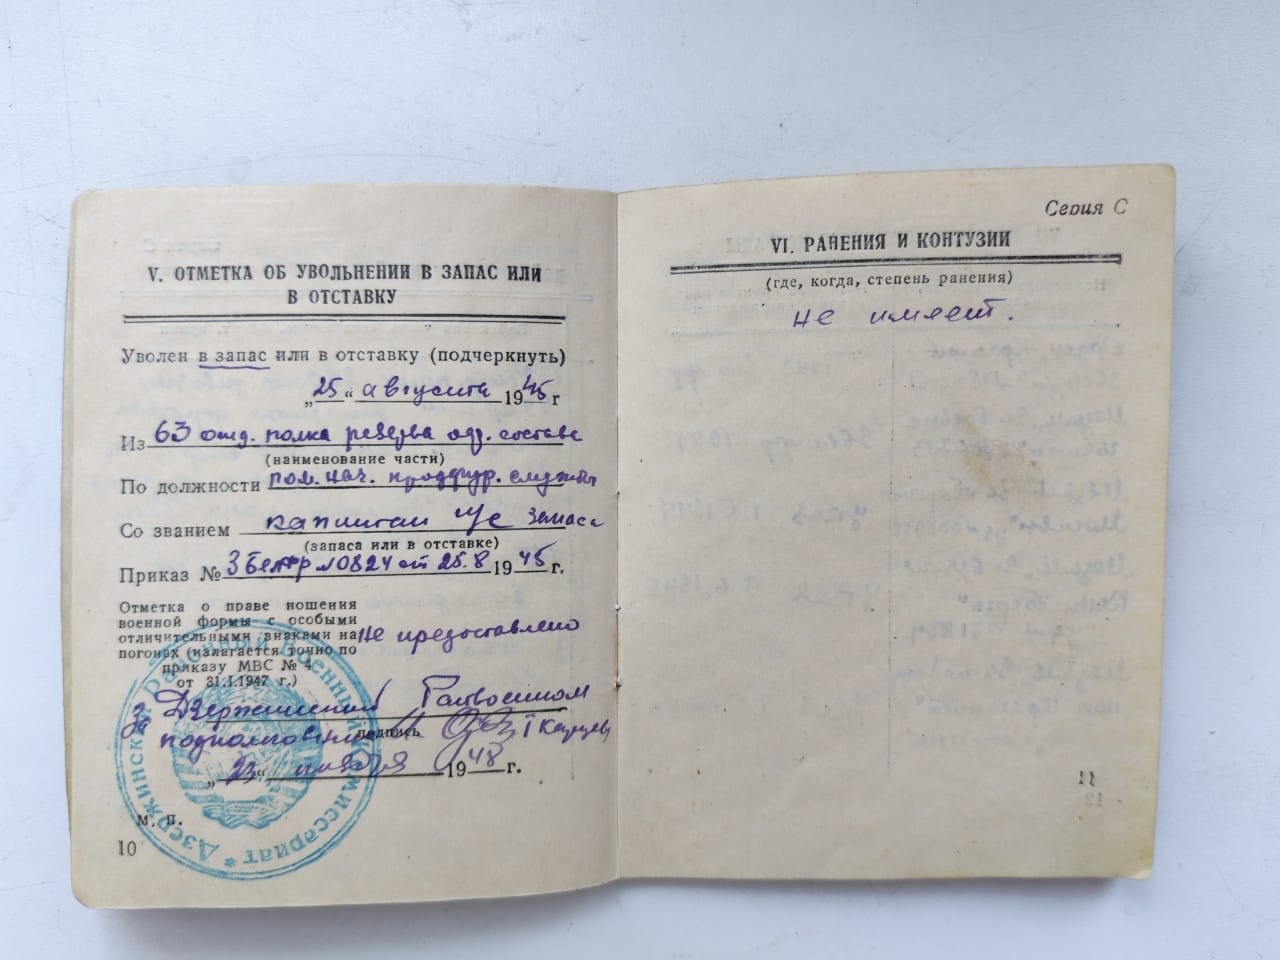 V. ОТМЕТКА ОБ УВОЛЬНЕНИИ В ЗАПАС ИЛИ
В ОТСТАВКУ
Уволен в запас или в отставку (подчеркнуть)
„25“ августа 1945 г
Из 63 отд. полка резерва оф. состава
(наименование части)
По должности пом. нач. продфур. службы
Со званием капитан и/с запаса
(запаса или в отставке)
Приказ № 3 Бел.фр №0824 от 25.8 1945 г.
Отметка о праве ношения
военной формы с особыми
отличительными знаками на
погонах (излагается точно по
приказу МВС № 4
от 31.I.1947 г.)
не предоставлено
Дзержинский Райвоенком
подполковник подпись
„23“ ноября 1948 г.
М. П.
Дзержинский Районный Военный Комиссариат *
10
Серия С
VI. РАНЕНИЯ И КОНТУЗИИ
(где, когда, степень ранения)
не имеет.
11